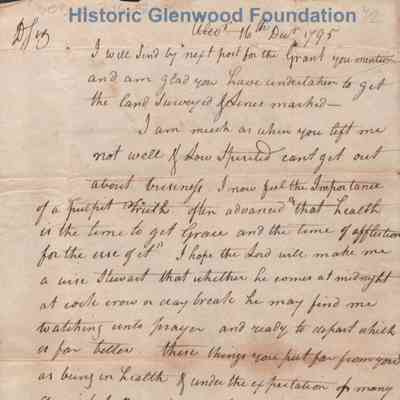 Historic Glenwood Foundation
16th Decr 1795
D Sir
I will Send by next post for the Grant you mention
and am glad you have undertaken to get
the land Surveyd & Lines marked—
I am much as when you left me
not well & Low Spirited cant get out
about business I now feel the Importance
of a pulpit truth often advanced "that health
is the time to get Grace and the time of affliction
for the use of it." I hope the Lord will make me
a wise Stewart that whether he comes at midnight
at cock crow or day break he may find me
watching unto prayer and ready to depart which
is far better these things you put far from you
as being in health & under the expectation of many